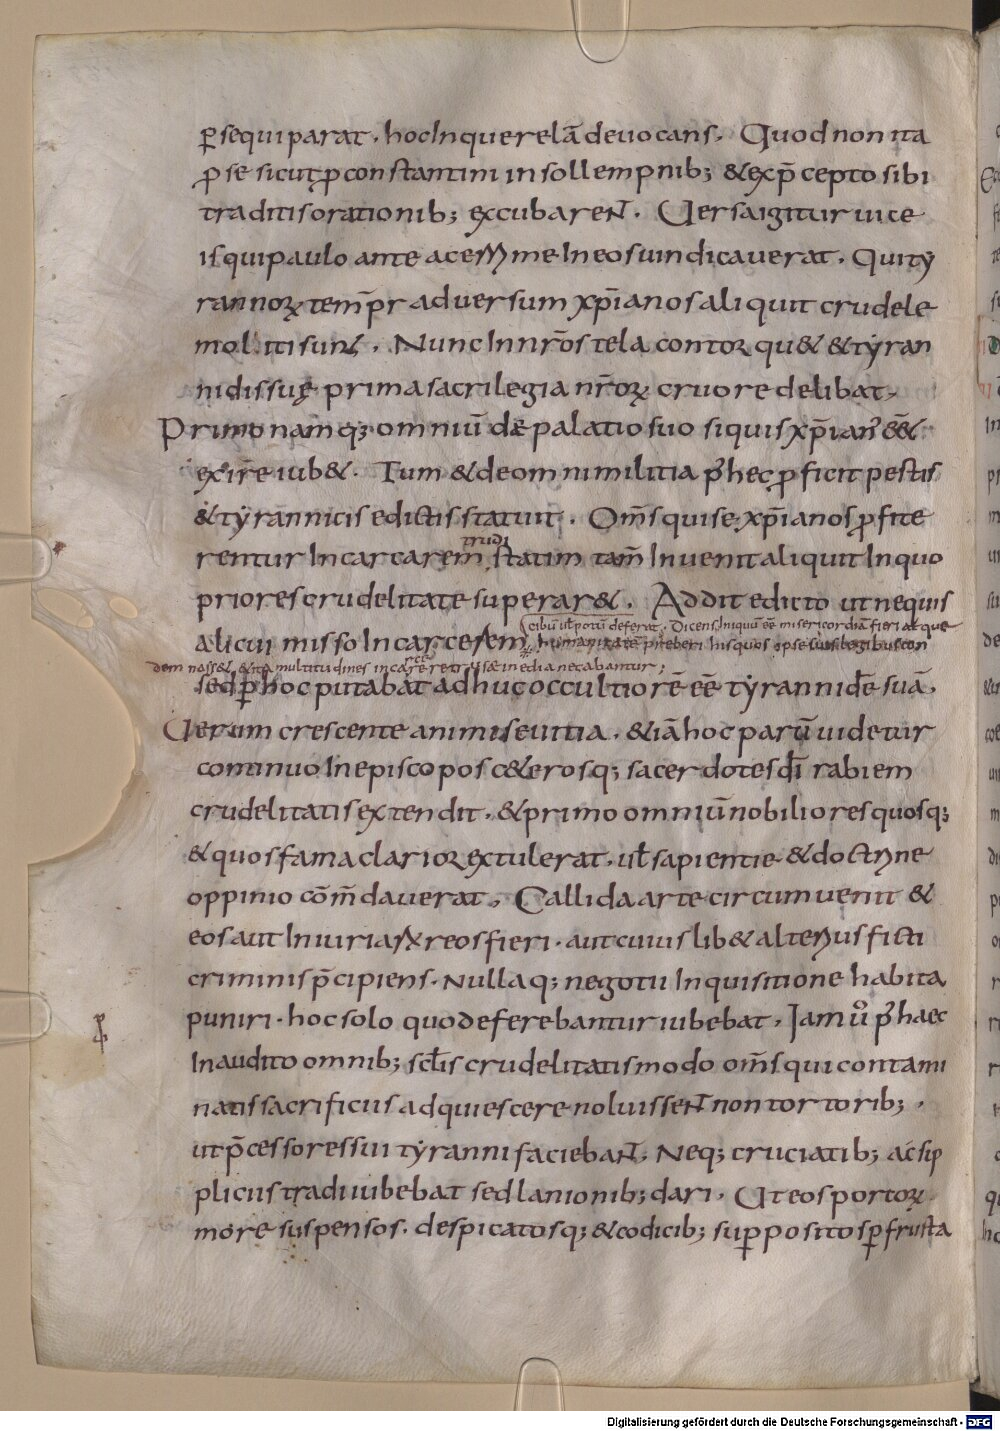 p̄sequi parat. hoc In querelā deuocans. Quod non ita
ꝓ se sicut ꝓ constantini in sollempnib; & ex p̄cepto sibi
traditis orationib; excubarent. Uersa igitur uice
is qui paulo ante acerrime In eos uindicauerat. Qui ty
rannoꝝ temp̄r aduersum xp̄ianos aliquit crudele
moliti sunt. Nunc In nr̄os tela contorqu& & tyran
nidis suę prima sacrilegia nr̄oꝝ cruore delibat.
Primo namq; omniū de palatio suo siquis xp̄ian' eē&
exire iub&. Tum & de omni militia p' hec ꝓficit pestis
& tyrannicis edictis statuit. Om̄s qui se xp̄ianos ꝓfite
trudi
rentur In carcarem statim tam̄ Inuenit aliquit In quo
priores crudelitate superar&. Addit edicto ut nequis
cibū ul̄ potū deferat. Dicens Iniquū eē misericordiā fieri atque
alicui misso In carcerem humanitatē preberi his quos ipse suis legibus con
demnass&, & ita multitudines in carcere retrusæ inedia necabantur;
sed p̄ hoc putabat adhuc occultiorē eē tyrannidē suā.
Uerum crescente animi seuitia. & iā hoc parū uidetur
continuo In episcopos c&erosq; sacerdotes dī rabiem
crudelitatis extendit. & primo omniū nobiliores quosq;
& quos fama clarior extulerat. ul̄ sapientie & doctrine
oppinio com̄dauerat. Callida arte circumuenit &
eos aut Iniuriaꝝ reos fieri. aut cuiuslib& alterius ficti
criminis p̄cipiens. Nullaq; negotii Inquisitione habita
puniri. hoc solo quo deferebantur iubebat. Iam uō p' haec
Inaudito omnib; scl̄is crudelitatis modo om̄s qui contami
natis sacrificiis adquiescere noluissent non tortorib;.
ut p̄cessores sui tyranni faciebant. Neq; cruciatib; ac sup
pliciis tradi iubebat sed lanionib; dari. Ut eos porcoꝝ
more suspensos. despicatosq; & codicib; suppositos p̄ frusta
Digitalisierung gefördert durch die Deutsche Forschungsgemeinschaft - DFG